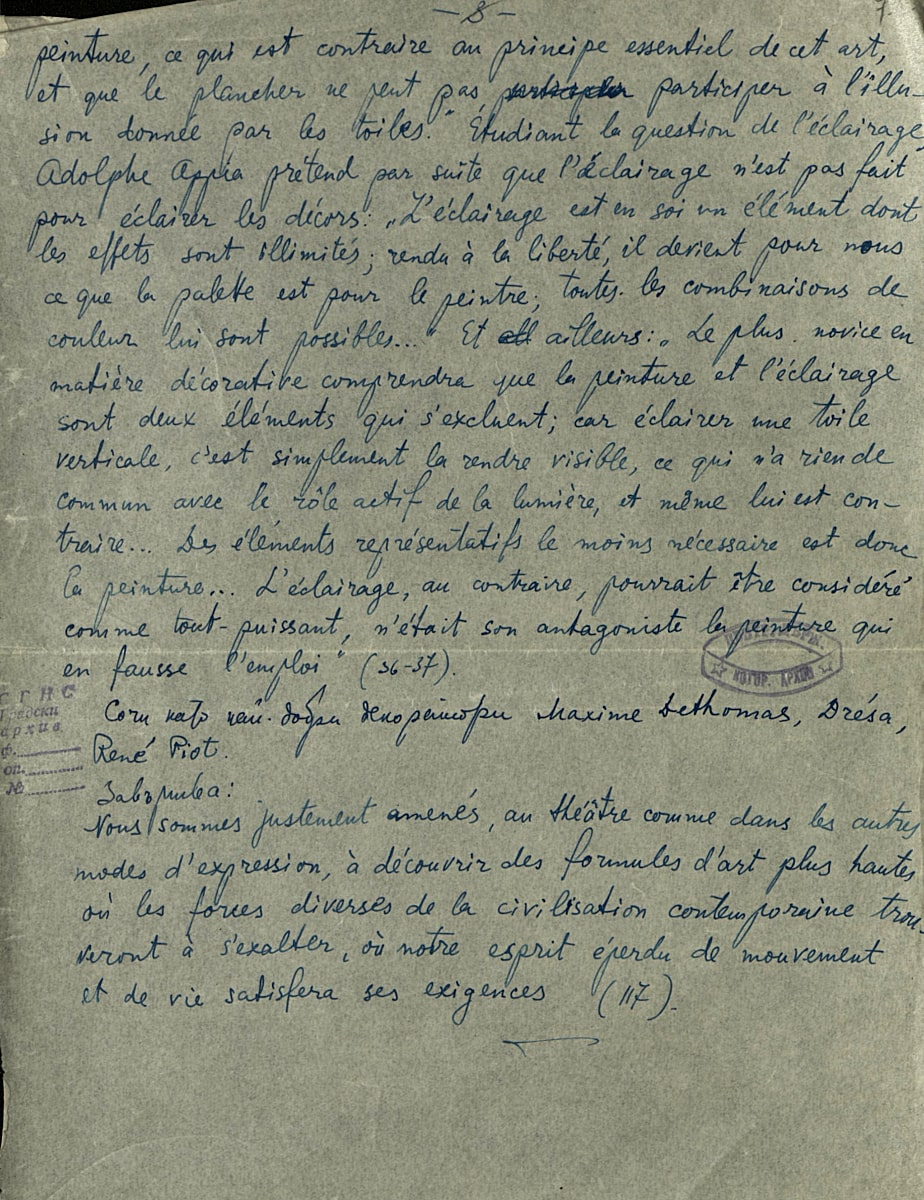 7.
peinture, ce qui est contraire au principe essentiel de cet art,
et que le plancher ne peut pas participer à l'illu-
sion donnée par les toiles." Étudiant la question de l'éclairage,
Adolphe Appia prétend par suite que l'éclairage n'est pas fait
pour éclairer les décors: „L'éclairage est en soi un élément dont
les effets sont illimités; rendu à la liberté, il devient pour nous
ce que la palette est pour le peintre; toutes les combinaisons de
couleur lui sont possibles..." Et ailleurs: „Le plus novice en
matière décorative comprendra que la peinture et l'éclairage
sont deux éléments qui s'excluent; car éclairer une toile
verticale, c'est simplement la rendre visible, ce qui n'a rien de
commun avec le rôle actif de la lumière, et même lui est con-
traire... Des éléments représentatifs le moins nécessaire est donc
la peinture... L'éclairage, au contraire, pourrait être considéré
comme tout-puissant, n'était son antagoniste la peinture qui
en fausse l'emploi" (36-37).
НОТОР. АРХИВ
СГНС
Градски
архив
ф.
оп.
№
Сочи като най-добри декоратори Maxime Dethomas, Drésa,
René Piot.
Завършва:
Nous sommes justement amenés, au théâtre comme dans les autres
modes d'expression, à découvrir des formules d'art plus hautes
où les forces diverses de la civilisation contemporaine trou-
veront à s'exalter, où notre esprit éperdu de mouvement
et de vie satisfera ses exigences (117).